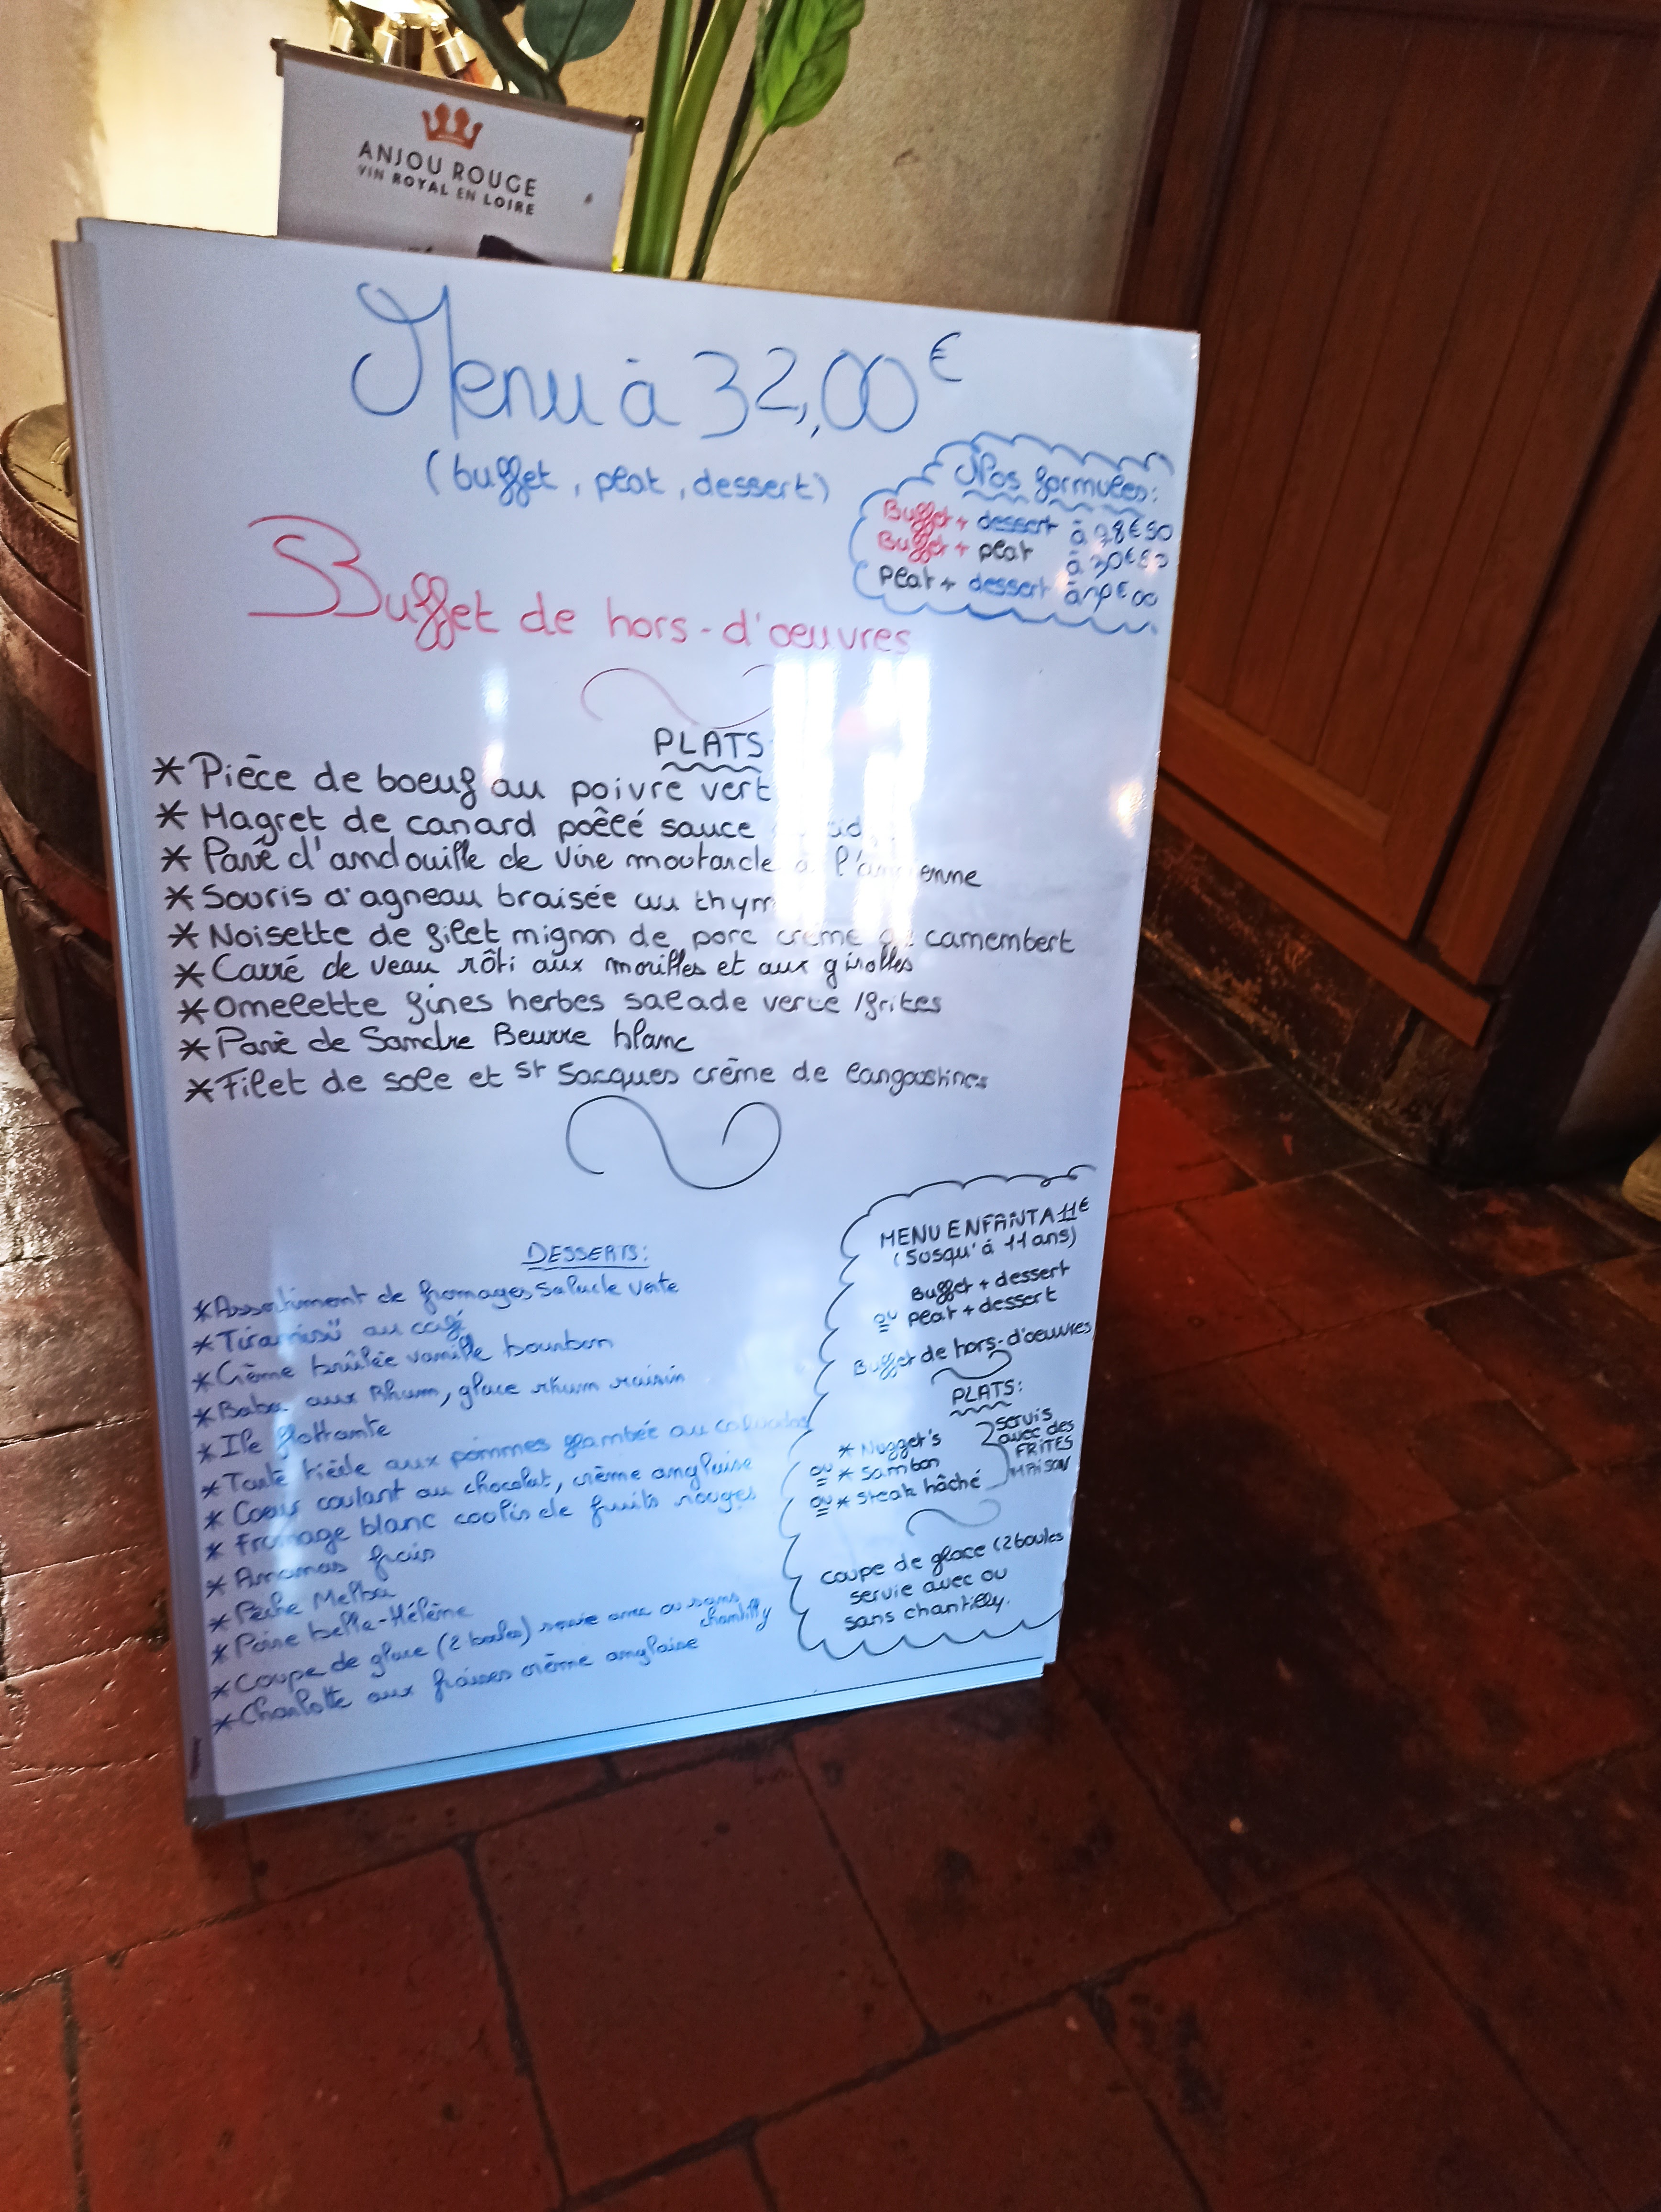 ANJOU ROUGE
VIN ROYAL EN LOIRE
Menu à 32,00€
(buffet, plat, dessert)
Nos formules:
Buffet + dessert à 28€50
Buffet + plat à 30€50
Plat + dessert à €00
Buffet de hors-d'œuvres
PLATS
* Pièce de boeuf au poivre vert
* Magret de canard poêlé sauce
* Pavé d'andouille de Vire moutarde à l'ancienne
* Souris d'agneau braisée au thym
* Noisette de filet mignon de porc crème de camembert
* Carré de veau rôti aux morilles et aux girolles
* Omelette fines herbes salade verte /frites
* Pavé de Sandre Beurre blanc
* Filet de sole et St Jacques crème de langoustines
DESSERTS:
* Assortiment de fromages Salade verte
* Tiramisü au café
* Crème brûlée vanille bourbon
* Baba aux Rhum, glace rhum raisin
* Ile flottante
* Tarte tiède aux pommes flambée au calvados
* Coeur coulant au chocolat, crème anglaise
* Fromage blanc coolis de fruits rouges
* Ananas frais
* Pêche Melba
* Poire belle-Hélène
* Coupe de glace (2 boules) servie avec ou sans chantilly
* Charlotte aux fraises crème anglaise
MENU ENFANT A 11€
(Jusqu'à 11 ans)
Buffet + dessert
ou plat + dessert
Buffet de hors-d'oeuvres
PLATS:
* Nugget's
ou * Jambon
ou * Steak hâché
servis
avec des
FRITES
MAISON
Coupe de glace (2 boules
servie avec ou
sans chantilly.